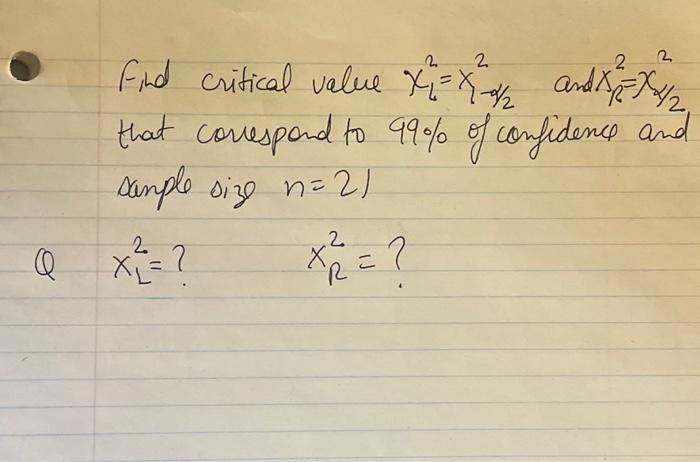 Find critical value χ²_L = χ²_1-α/2 and χ²_R = χ²_α/2
that correspond to 99% of confidence and
sample size n = 21
Q χ²_L = ? χ²_R = ?